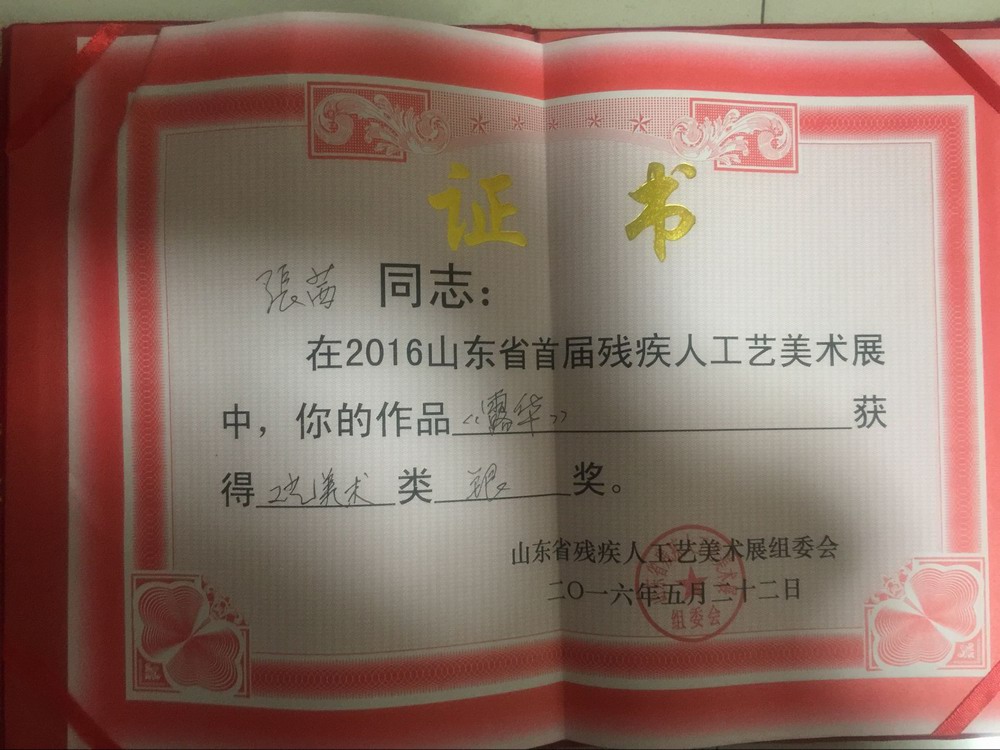 证书
張茜 同志：
在2016山东省首届残疾人工艺美术展
中，你的作品《露华》获
得工艺美术类银奖。
山东省残疾人工艺美术展组委会
二〇一六年五月二十二日
组委会